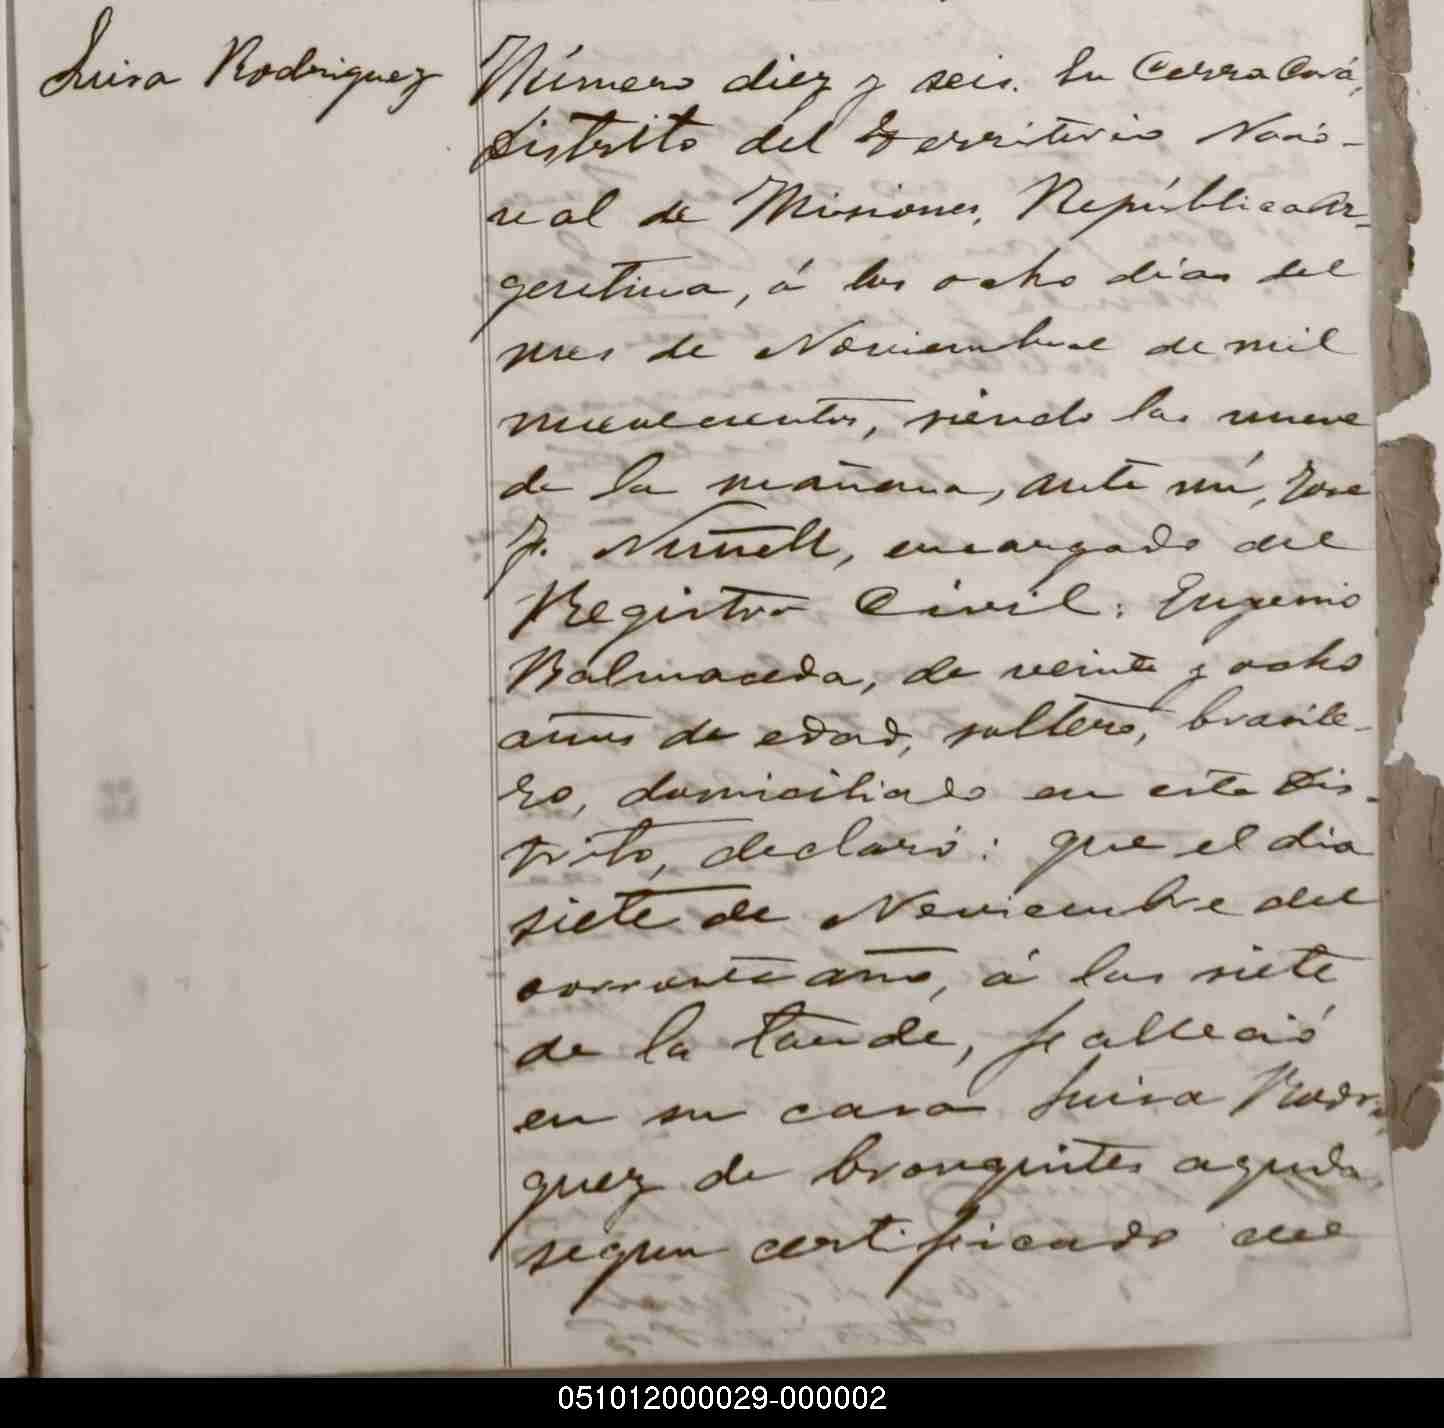 Luisa Rodriguez
Número diez y seis. En Cerro Corá,
Distrito del Territorio Nacio-
nal de Misiones, República Ar-
gentina, á los ocho dias del
mes de Noviembre de mil
novecientos, siendo las nueve
de la mañana, ante mí, José
J. Nuñell, encargado del
Registro Civil: Eugenio
Balmaceda, de veinte y ocho
años de edad, soltero, brasile-
ro, domiciliado en este Dis-
trito, declaró: que el dia
siete de Noviembre del
corriente año, á las siete
de la tarde, falleció
en su casa Luisa Rodri-
guez de bronquites aguda,
segun certificado del
051012000029-000002